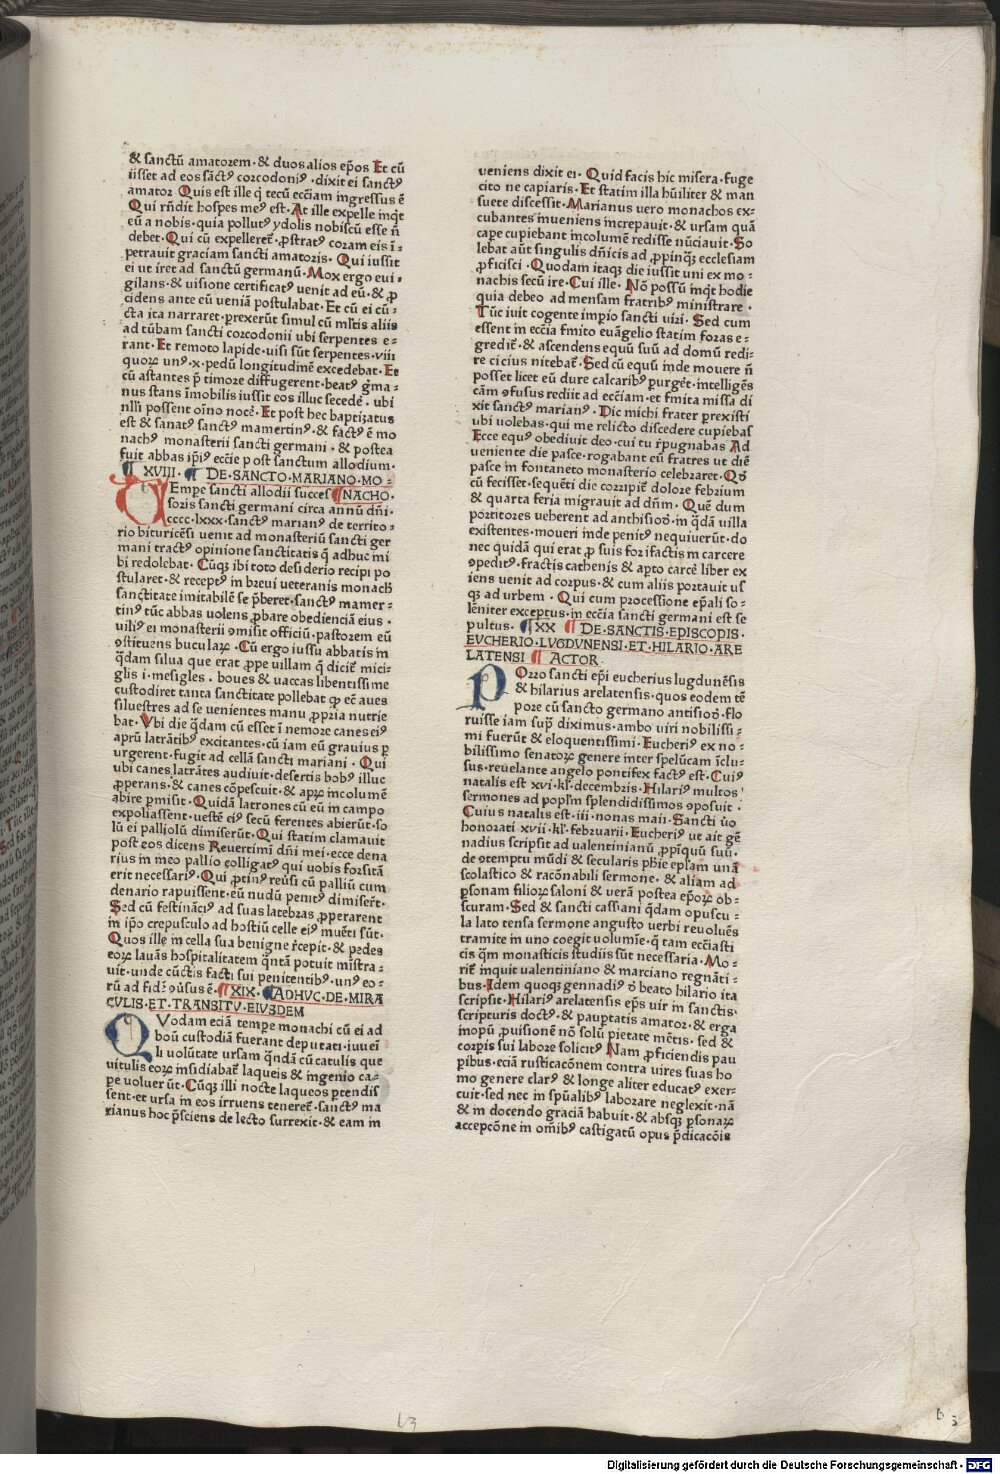 & sanctū amatorem·& duos alios ep̄os Et cū
iisset ad eos sāctꝰ corcodoniꝰ·dixit ei sanctꝰ
amator Quis est ille q̄ tecū ecc̄iam ingressus ē
Qui rn̄dit hospes meꝰ est·At ille expelle inq̄t
eū a nobis·quia pollutꝰ ydolis nobiscū esse n̄
debet·Qui cū expelleret᷒·ꝓstratꝰ coram eis ī=
petrauit graciam sancti amatoris·Qui iussit
ei ut iret ad sanctū germanū·Mox ergo eui=
gilans·& uisione certificatꝰ uenit ad eū·& ꝓ
cidens ante eū ueniā postulabat·Et cū ei cū=
cta ita narraret·prexerūt simul cū ml̄tis aliis
ad tūbam sancti corcodonii ubi serpentes e=
rant·Et remoto lapide·uisi sūt serpentes·viii
quoꝝ unꝰ·x·pedū longitudinē excedebat·Et
cū astantes p̄ timore diffugerent·beatꝰ g̃ma=
nus stans īmobilis iussit eos illuc secedē·ubi
nll̄i possent oīno nocē·Et post hec baptizatus
est & sanatꝰ sanctꝰ mamertinꝰ·& factꝰ ē mo
nachꝰ monasterii sancti germani·& postea
fuit abbas ip̄iꝰ ecc̄ie post sanctum allodium·
¶ XVIII·¶ DE·SANCTO·MARIANO·MO=
TEmpe sancti allodii succes ¶NACHO·
soris sancti germani circa annū dn̄i·
cccc·lxxx·sanctꝰ marianꝰ de territo=
rio bituricēsi uenit ad monasteriū sancti ger
mani tractꝰ opinione sanctitatis q̄ adhuc mi
bi redolebat·Cūqꝫ ibi toto desiderio recipi po
stularet·& receptꝰ in breui ueteranis monach̄
sanctitate imitabilē se p̄beret·sanctꝰ mamer=
tinꝰ tūc abbas uolens ꝓbare obedienciā eius·
uiliꝰ ei monasterii ꝯmisit officiū·pastorem eū
ꝯstituens buculaꝝ·Cū ergo iussu abbatis in
q̄dam silua que erat ꝓpe uillam q̄ dicit᷒ mici=
glis i·mesigles·boues & uaccas libentissime
custodiret tanta sanctitate pollebat ꝙ eē aues
siluestres ad se uenientes manu ꝓpria nutrie
bat·Vbi die q̄dam cū esset ī nemore canes eiꝰ
aprū latrātibꝰ excitantes·cū iam eū grauius p̱
urgerent·fugit ad cellā sancti mariani·Qui
ubi canes latrātes audiuit·desertis bobꝰ illuc
ꝓperans·& canes cōpescuit·& apꝝ incolumē
abire p̱misit·Quidā latrones cū eū in campo
expoliassent·uestē eiꝰ secū ferentes abierūt·so
lū ei palliolū dimiserūt·Qui statim clamauit
post eos dicens Reuertimī dn̄i mei·ecce dena
rius in meo pallio ꝯlligatꝰ qui uobis forsitā
erit necessariꝰ·Qui ꝓtinꝰ reūsi cū palliū cum
denario rapuissent·eū nudū penitꝰ dimiser̄t·
Sed cū festināciꝰ ad suas latebras ꝓperarent
in ip̄o crepusculo ad hostiū celle eiꝰ muēti sūt·
Quos ille in cella sua benigne r̄cepit·& pedes
eoꝝ lauās hospitalitatem q̄ntā potuit mīstra=
uit·unde cūctis facti sui penitentibꝰ·unꝰ eo=
rū ad fidē ꝯūsus ē·¶XIX·¶ADHVC·DE·MIRA
CVLIS·ET·TRANSITV·EIVSDEM
QVodam eciā tempe monachi cū ei ad
boū custodiā fuerant deputati·iuuei
li uolūtate ursam q̄ndā cū catulis que
uitulis eoꝝ insidiabat᷒ laqueis & ingenio ca=
p̱e uoluerūt·Cūqꝫ illi nocte laqueos p̱tendis
sent·et ursa in eos irruens teneret᷒·sanctꝰ ma
rianus hoc p̄sciens de lecto surrexit·& eam in
ueniens dixit ei·Quid facis hic misera·fuge
cito ne capiaris·Et statim illa hūiliter & man
suete discessit·Marianus uero monachos ex=
cubantes inueniens increpauit·& ursam quā
cape cupiebant incolumē redisse nūciauit·So
lebat aūt singulis dn̄icis ad ꝓpinqꝫ ecclesiam
ꝓficisci·Quodam itaqꝫ die iussit uni ex mo=
nachis secū ire·Cui ille·Nō possū inq̄t hodie
quia debeo ad mensam fratribꝰ ministrare·
Tūc iuit cogente impio sancti uiri·Sed cum
essent in ecc̄ia finito euāgelio statim foras e=
gredit᷒·& ascendens equū suū ad domū redi=
re cicius nitebat᷒·Sed cū equū inde mouere n̄
posset licet eū dure calcaribꝰ p̱urgēt·intelligēs
cām ꝯfusus rediit ad ecc̄iam·et finita missa di
xit sanctꝰ marianꝰ·Dic michi frater p̱rexisti
ubi uolebas·qui me relicto discedere cupiebas
Ecce equꝰ obediuit deo·cui tu r̄pugnabas Ad
ueniente die pasce·rogabant eū fratres ut diē
pasce in fontaneto monasterio celebraret·Qꝺ̄
cū fecisset·sequēti die corripit᷒ dolore febrium
& quarta feria migrauit ad dn̄m·Quē dum
portitores ueherent ad anthisioꝺ̄·in q̄dā uilla
existentes·moueri inde penitꝰ nequiuerūt·do
nec quidā qui erat ꝓ suis forifactis in carcere
ꝯpeditꝰ·fractis cathenis & apto carcē liber ex
iens uenit ad corpus·& cum aliis portauit us
qꝫ ad urbem·Qui cum processione ep̄ali so=
lēniter exceptus·in ecc̄ia sancti germani est se
pultus·¶XX ¶ DE·SANCTIS·EPISCOPIS·
EVCHERIO·LVGDVNENSI·ET·HILARIO·ARE
LATENSI ¶ ACTOR·
POrro sancti ep̄i eucherius lugdunēsis
& hilarius arelatensis·quos eodem tē
pore cū sancto germano antisioꝺ̄·flo
ruisse iam sup̄ diximus·ambo uiri nobilissi=
mi fuerūt & eloquentissimi·Eucheriꝰ ex no=
bilissimo senatoꝝ genere inter spelūcam īclu=
sus·reuelante angelo pontifex factꝰ est·Cuiꝰ
natalis est xvi·kl̄·decembris·Hilariꝰ multos
sermones ad popl̄m splendidissimos ꝯposuit·
Cuius natalis est·iii·nonas maii·Sancti ūo
honorati xvii·kl̄·februarii·Eucheriꝰ ut ait gē
nadius scripsit ad ualentinianū ꝓpīquū suū·
de ꝯtemptu mūdi & secularis ph̄ie epl̄am unā
scolastico & racōnabili sermone·& aliam ad
p̱sonam filioꝝ saloni & uerā postea ep̄oꝝ ob=
scuram·Sed & sancti cassiani q̄dam opuscu=
la lato tensa sermone angusto uerbi reuoluēs
tramite in uno coegit volumīe·q̄ tam ecc̄iasti
cis q̄m monasticis studiis sūt necessaria·Mo=
rit᷒ inquit ualentiniano & marciano regnāti=
bus·Idem quoqꝫ gennadiꝰ ꝺ̄ beato hilario ita
scripsit·Hilariꝰ arelatensis ep̄s uir in sanctis·
scripturis doctꝰ·& pauptatis amator·& erga
inopū ꝓuisionē nō solū pietate mētis·sed &
corp̱is sui labore solicitꝰ Nam ꝓficiendis pau
p̱ibus·eciā rusticacōnem contra uires suas ho
mo genere clarꝰ & longe aliter educatꝰ exer=
cuit·sed nec in spūalibꝰ laborare neglexit·nā
& in docendo graciā habuit·& absqꝫ p̱sonaꝝ
accepcōne in om̄ibꝰ castigatū opus p̄dicacōis
63
b 3
Digitalisierung gefördert durch die Deutsche Forschungsgemeinschaft - DFG